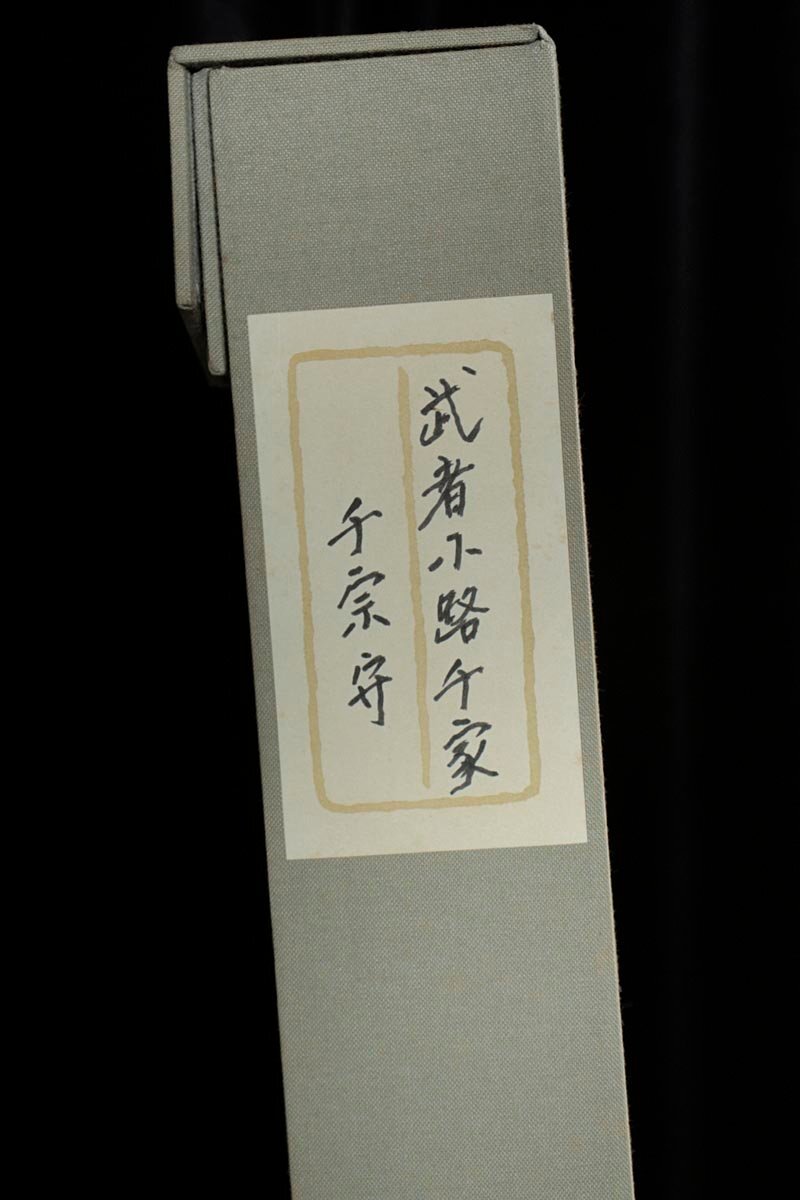 武者小路千家
千宗守